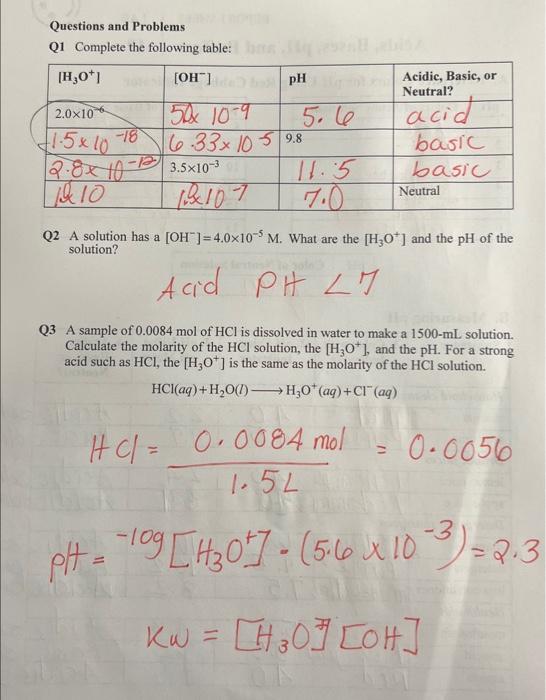 Questions and Problems
Q1 Complete the following table:
[H₃O⁺] [OH⁻] pH Acidic, Basic, or Neutral?
2.0×10⁻⁶ 50x 10⁻⁹ 5.6 acid
1.5x10⁻¹⁸ 6.33x10⁻⁵ 9.8 basic
2.8x10⁻¹² 3.5×10⁻³ 11.5 basic
10 10⁻⁷ 7.0 Neutral
Q2 A solution has a [OH⁻]=4.0×10⁻⁵ M. What are the [H₃O⁺] and the pH of the
solution?
Acid PH <7
Q3 A sample of 0.0084 mol of HCl is dissolved in water to make a 1500-mL solution.
Calculate the molarity of the HCl solution, the [H₃O⁺], and the pH. For a strong
acid such as HCl, the [H₃O⁺] is the same as the molarity of the HCl solution.
HCl(aq)+H₂O(l)⟶H₃O⁺(aq)+Cl⁻(aq)
HCl = 0.0084 mol = 0.0056
1.5L
pH = -log[H₃O⁺]-(5.6 x10⁻³)=2.3
Kw = [H₃O⁺][OH]